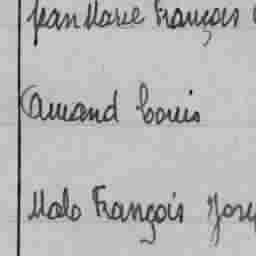 Jean Marie François
Amand Louis
Malo François Jose